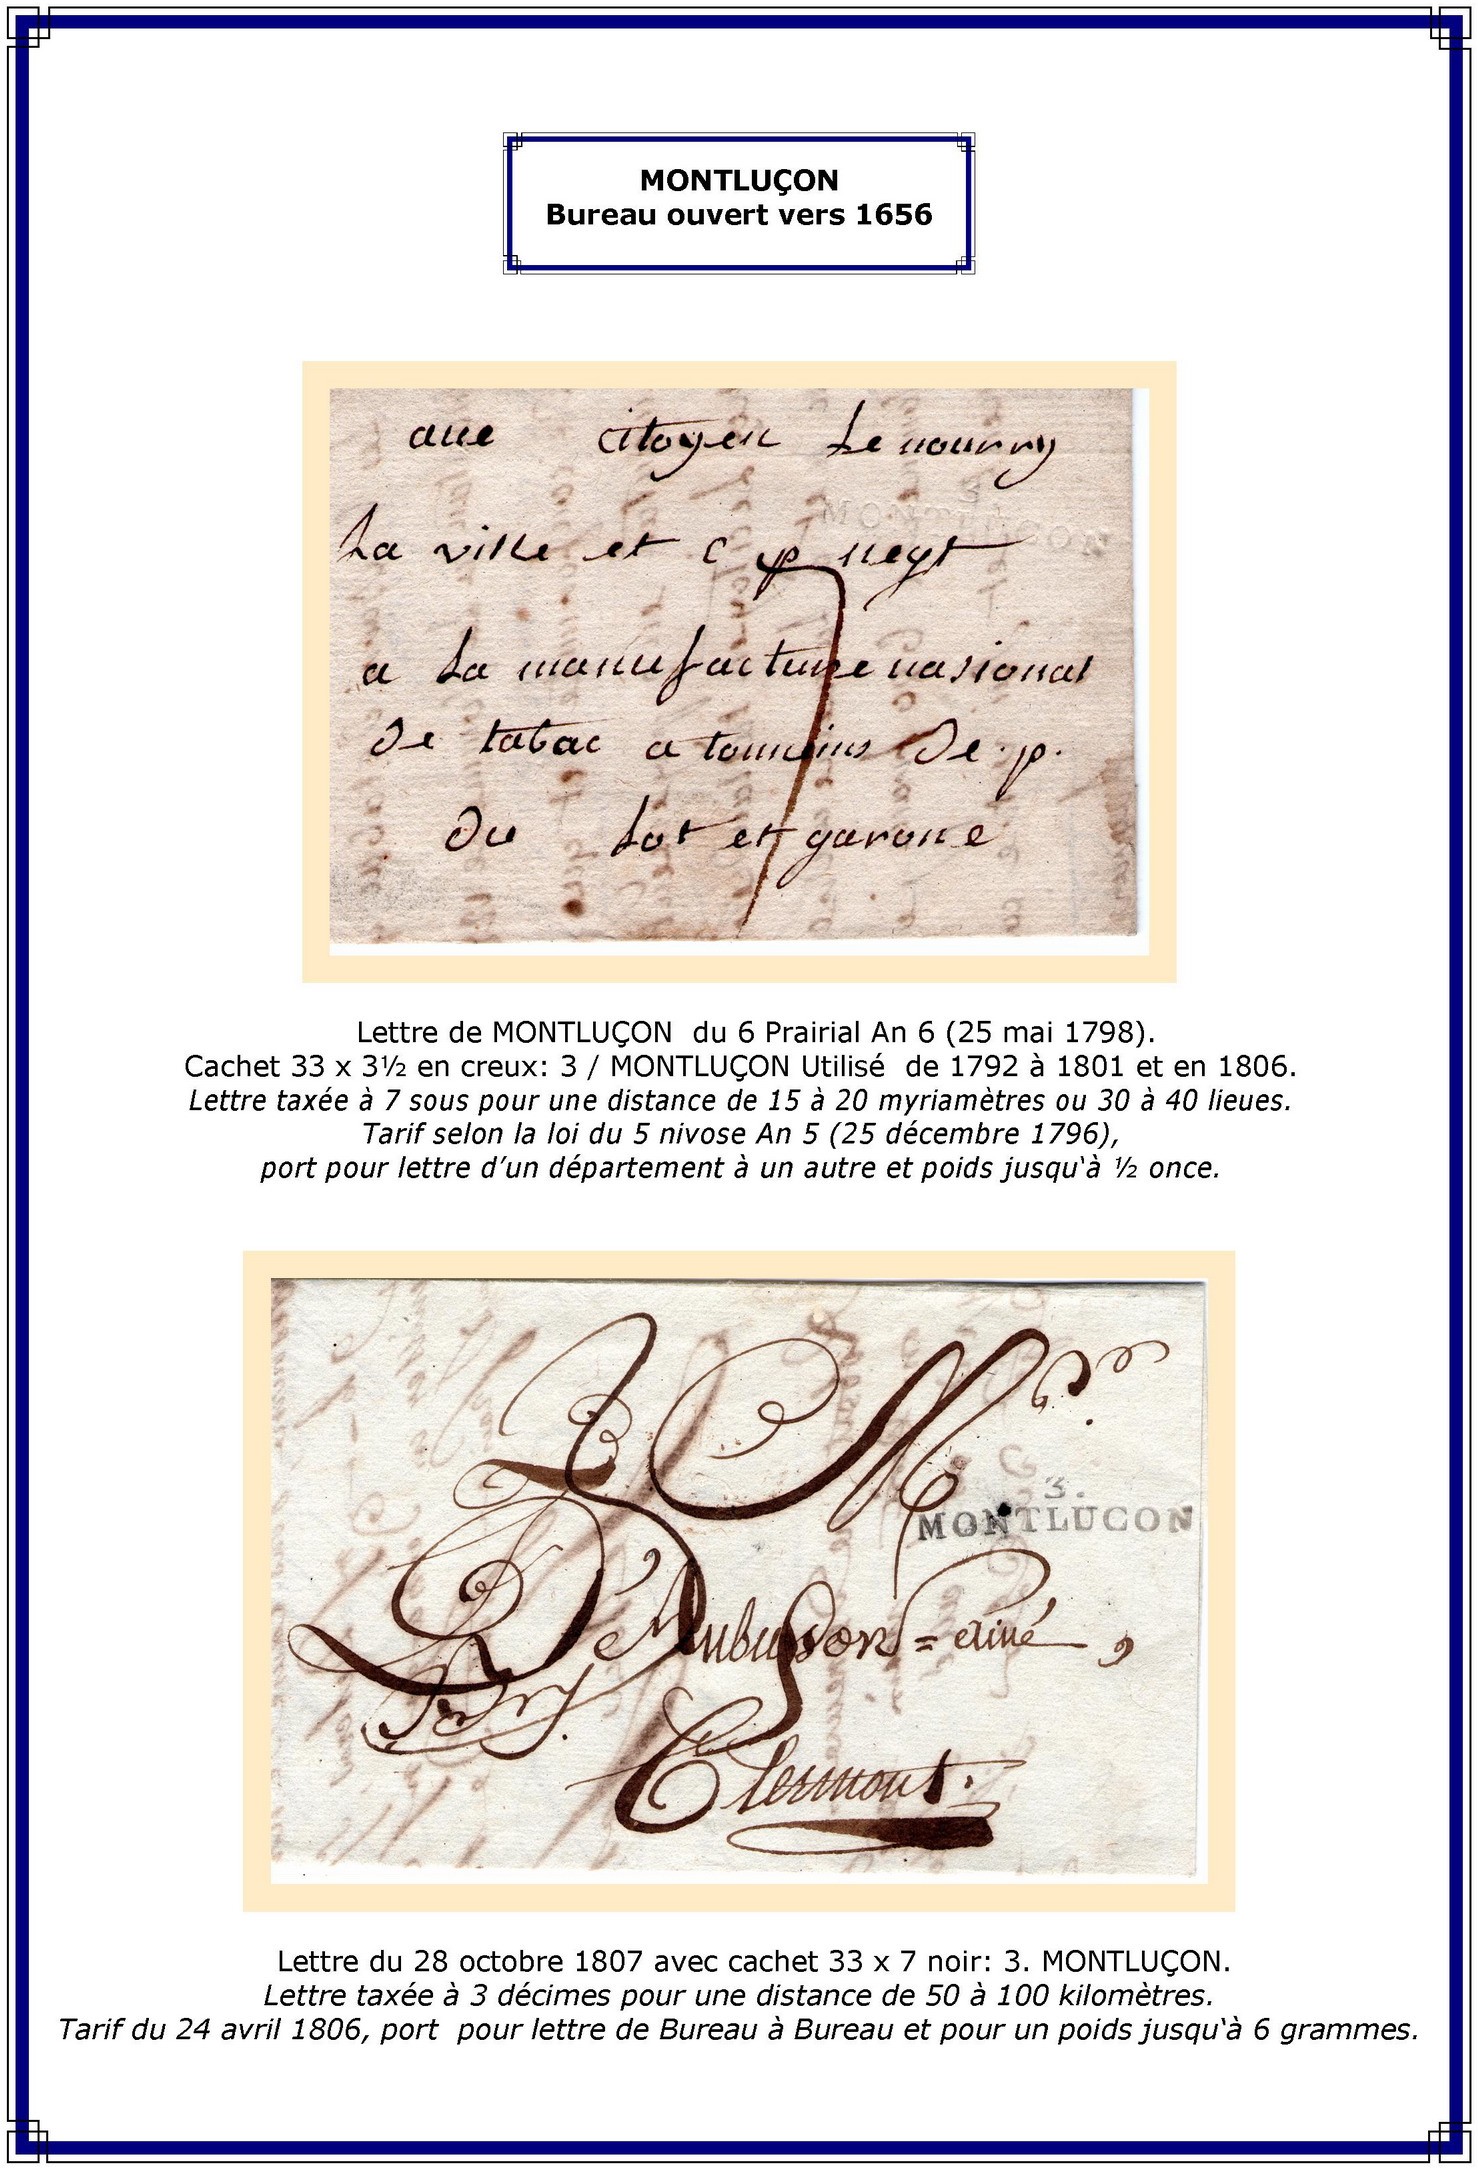 MONTLUÇON
Bureau ouvert vers 1656
aue citoyen Lenourry
MONTLUCON
La ville et c p neyt
a La manufacture nasional
de tabac a tonneins de.p.
du Lot et garone
7
Lettre de MONTLUÇON du 6 Prairial An 6 (25 mai 1798).
Cachet 33 x 3½ en creux: 3 / MONTLUÇON Utilisé de 1792 à 1801 et en 1806.
Lettre taxée à 7 sous pour une distance de 15 à 20 myriamètres ou 30 à 40 lieues.
Tarif selon la loi du 5 nivose An 5 (25 décembre 1796),
port pour lettre d’un département à un autre et poids jusqu‘à ½ once.
3 M
3.
MONTLUCON
D'Aubusson = ainé,
Clermont.
Lettre du 28 octobre 1807 avec cachet 33 x 7 noir: 3. MONTLUÇON.
Lettre taxée à 3 décimes pour une distance de 50 à 100 kilomètres.
Tarif du 24 avril 1806, port pour lettre de Bureau à Bureau et pour un poids jusqu‘à 6 grammes.